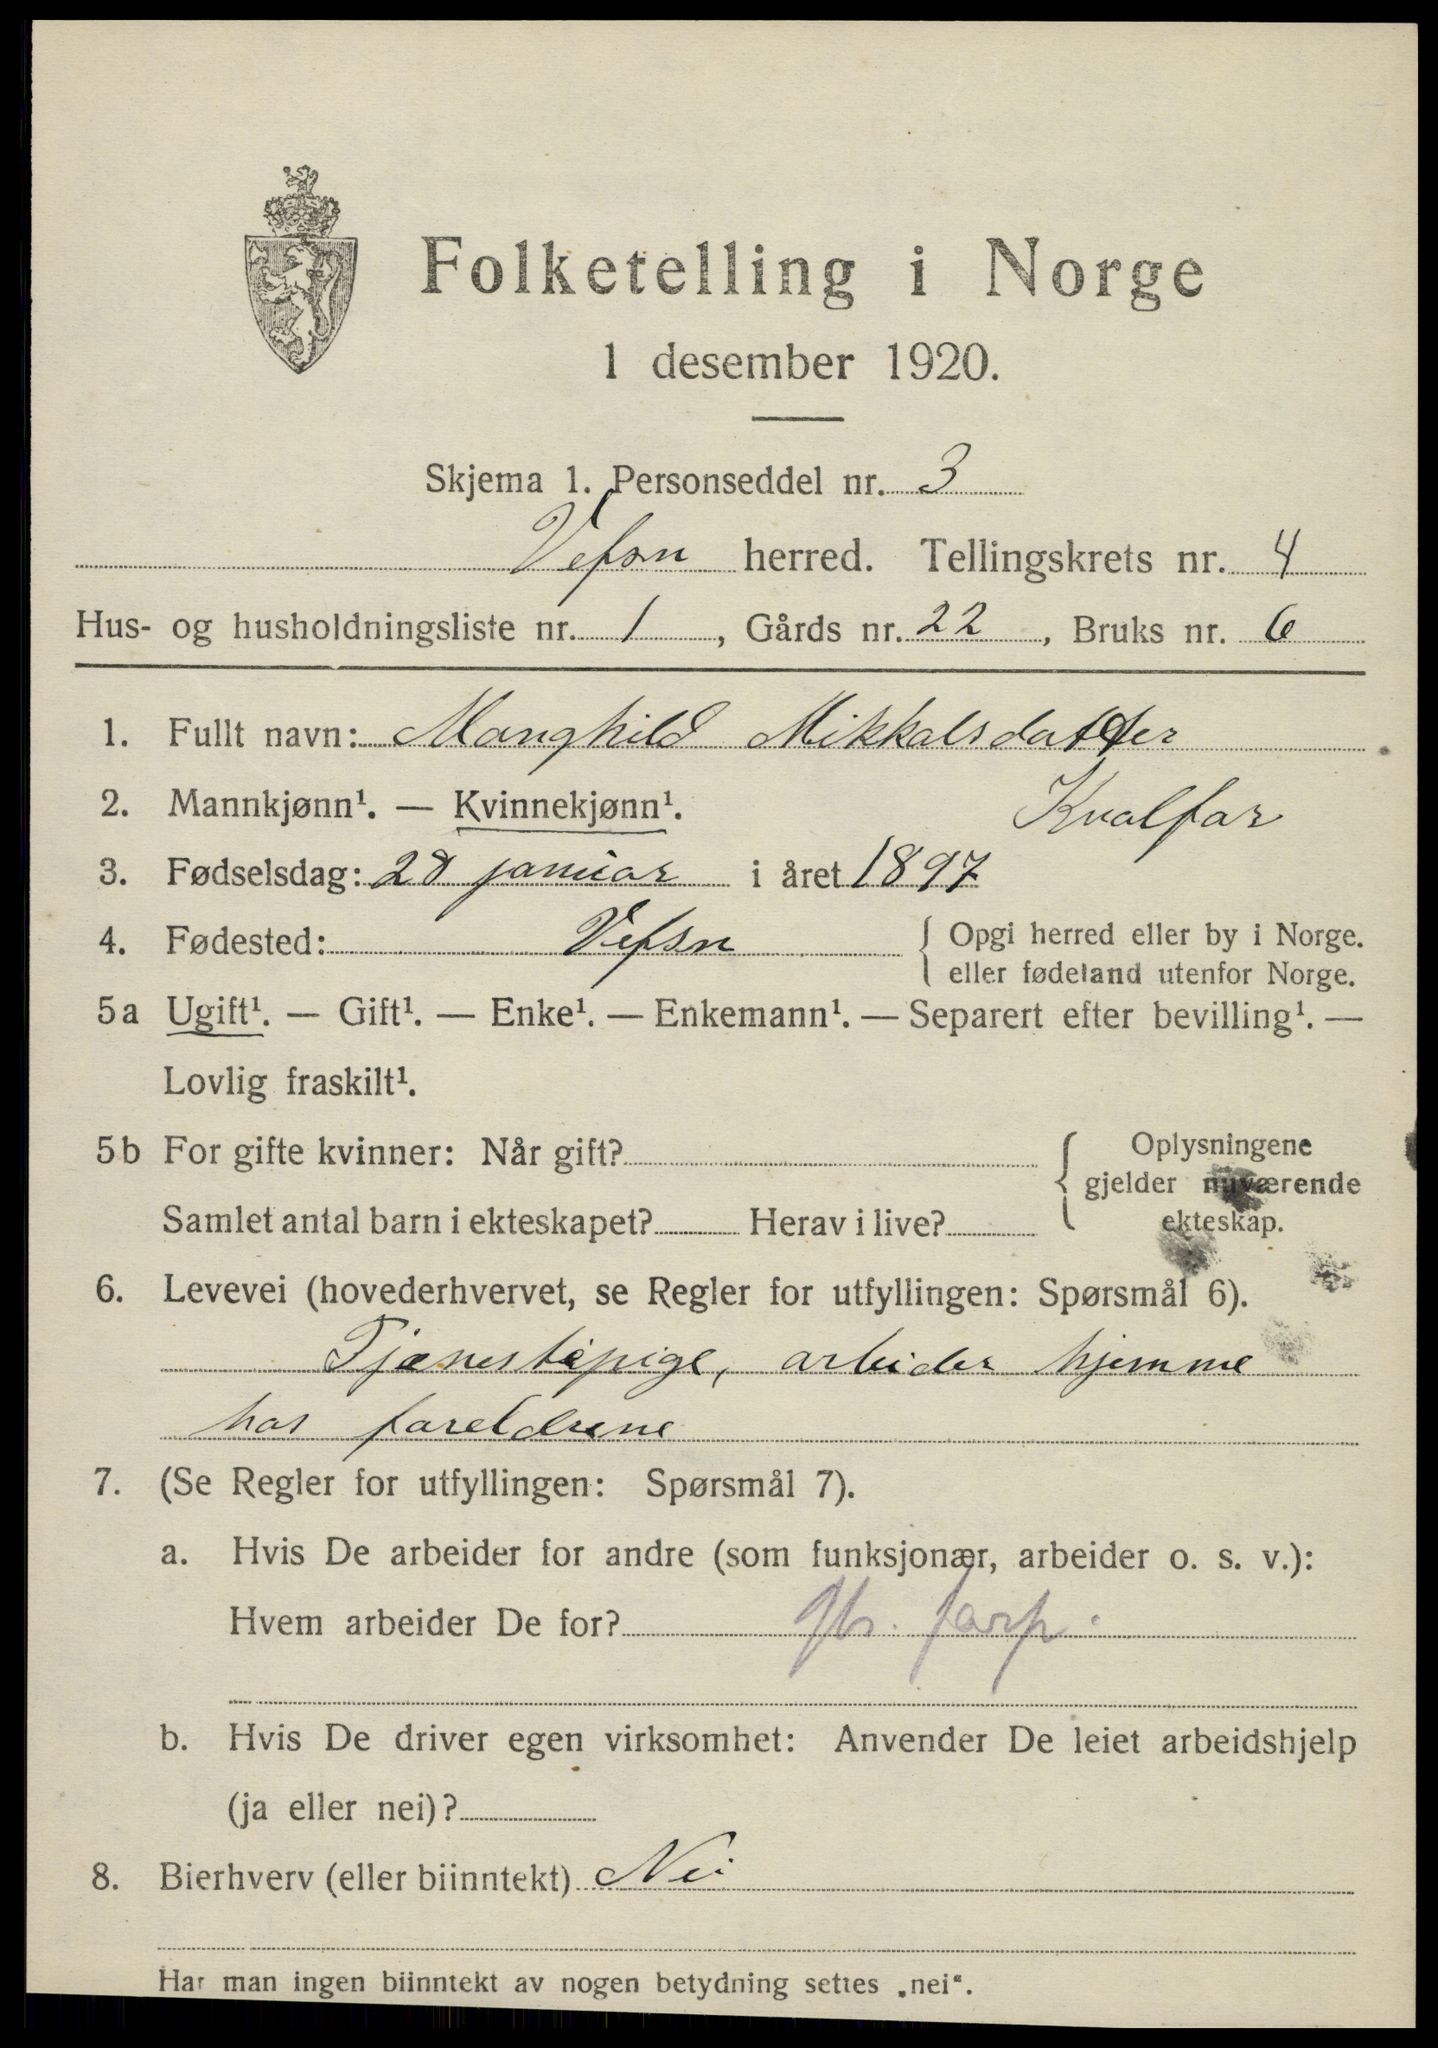 Folketelling i Norge
1 desember 1920.
Skjema 1. Personseddel nr. 3
Vefsn herred. Tellingskrets nr. 4
Hus- og husholdningsliste nr. 1, Gårds nr. 22, Bruks nr. 6
1. Fullt navn: Manghild Mikkalsdatter
Kvalfar
2. Mannkjønn¹. — Kvinnekjønn¹.
3. Fødselsdag: 28 januar i året 1897
4. Fødested: Vefsn { Opgi herred eller by i Norge.
eller fødeland utenfor Norge.
5a Ugift¹. — Gift¹. — Enke¹. — Enkemann¹. — Separert efter bevilling¹. —
Lovlig fraskilt¹.
5b For gifte kvinner: Når gift? { Oplysningene
gjelder nuværende
ekteskap.
Samlet antal barn i ekteskapet? Herav i live?
6. Levevei (hovederhvervet, se Regler for utfyllingen: Spørsmål 6).
Tjænestepige, arbeider hjemme
hos foreldrene
7. (Se Regler for utfyllingen: Spørsmål 7).
a. Hvis De arbeider for andre (som funksjonær, arbeider o. s. v.):
Hvem arbeider De for?
b. Hvis De driver egen virksomhet: Anvender De leiet arbeidshjelp
(ja eller nei)?
8. Bierhverv (eller biinntekt) Nei
Har man ingen biinntekt av nogen betydning settes „nei".